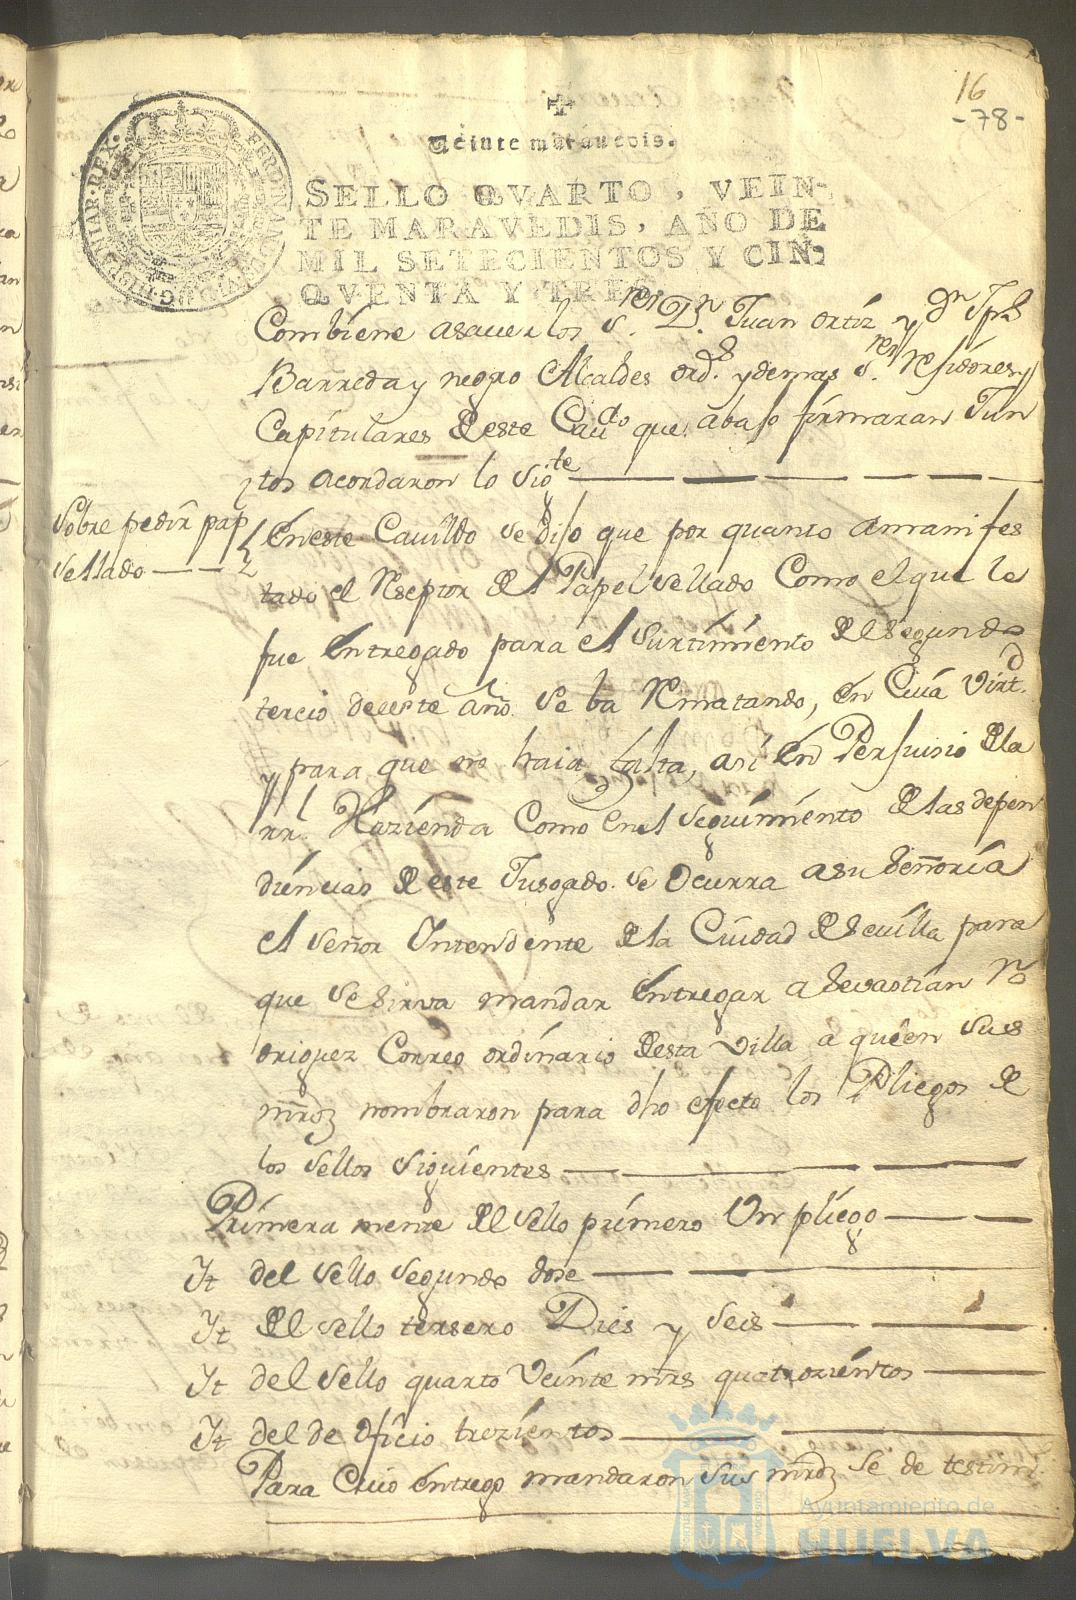 16
-78-
Veinte marauedis.
SELLO QVARTO, VEIN-
TE MARAVEDIS, AÑO DE
MIL SETECIENTOS Y CIN-
QVENTA Y TRES.
FERDINANDUS VI D G HISPANIAR REX
Combiene asauer los S.res Dn. Juan ortiz y Dn Jph
Barreda y negro Alcaldes ords. y demas S.res Residores y
Capitulares de este Caudo que abaso firmaran Jun
tos acordaron lo sigte
Sobre pedir pap
sellado
En este Cauildo se diso que por quanto a manifes
tado el Reseptor del Papel sellado Como el que le
fue entregado para el surtimiento del segundo
tercio de este año se ba Rematando, en Cuia Virtd.
y para que no haia falta, asi en Persuisio de la
rrl. Hazienda Como en el seguimiento de las depen
diencias de este Jusgado se Ocurra a su señoria
el señor Intendente de la Ciudad de seuilla para
que se sirva mandar entregar a Sevastian Ro
driguez Correo ordinario de esta Villa a quien sus
mrdz nombraron para dho efecto los Pliegos de
los sellos siguientes
Primera mente del sello primero Un pliego
Yt del sello segundo dose
Yt del sello tersero Dies y seis
Yt del sello quarto Veinte mrs quatrozientos
Yt del de oficio trezientos
Para Cuio entrego mandaron sus mrdz se de testim.
Ayuntamiento de
HUELVA